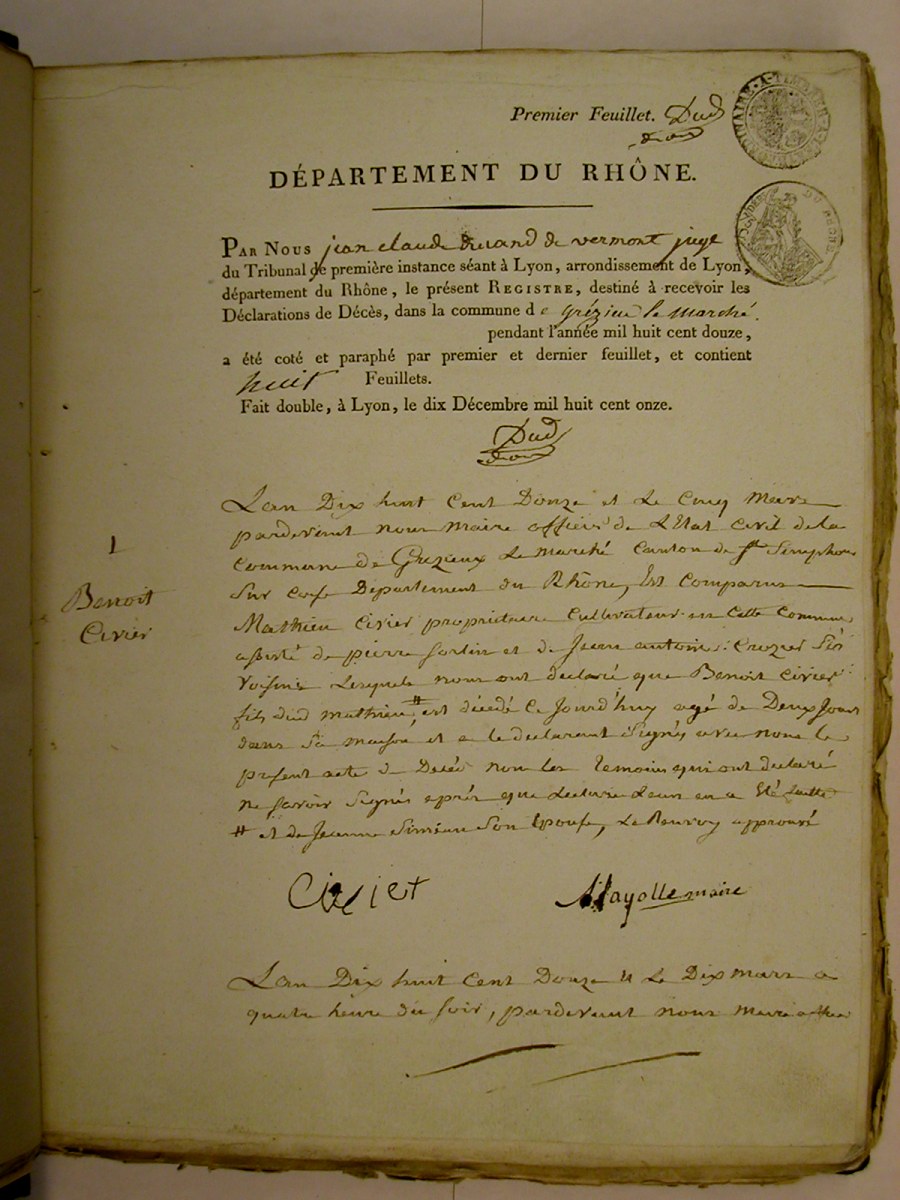 Premier Feuillet. Dud
DÉPARTEMENT DU RHÔNE.
PAR NOUS jean claude durand de vermont juge
du Tribunal de première instance séant à Lyon, arrondissement de Lyon,
département du Rhône, le présent REGISTRE, destiné à recevoir les
Déclarations de Décès, dans la commune de grézieu le marché.
pendant l'année mil huit cent douze,
a été coté et paraphé par premier et dernier feuillet, et contient
huit Feuillets.
Fait double, à Lyon, le dix Décembre mil huit cent onze.
Dud
1
Benoit
Civier
Lan Dix huit cent Douze et Le Cinq Mars
pardevant nous maire officié de L'Etat civil de la
Commune de Grezieux Le Marché canton de St Simphor
Sur coise Departement du Rhône, Est comparu
Mathieu Civier propriétaire Cultivateur en Cette Commune
assisté de pierre et de Jean antoine Crozier Ses
Voisins Lesquels nous ont déclaré que Benoit Civier
fils dud mathieu # est décédé Ce Jourd'huy agé de Deux Jours
dans Sa maison et a le declarant Signés avec nous le
present acte de Decés non les temoins qui ont declaré
ne savoir Signés aprés que Lecture Leur en a Eté faitte
# et de Jeanne Simeau Son Epouse, Le Renvoy approuvé
Civier Mayolle maire
Lan Dix huit cent Douze et Le Dix mars a
quatre heure du Soir, pardevant nous Maire